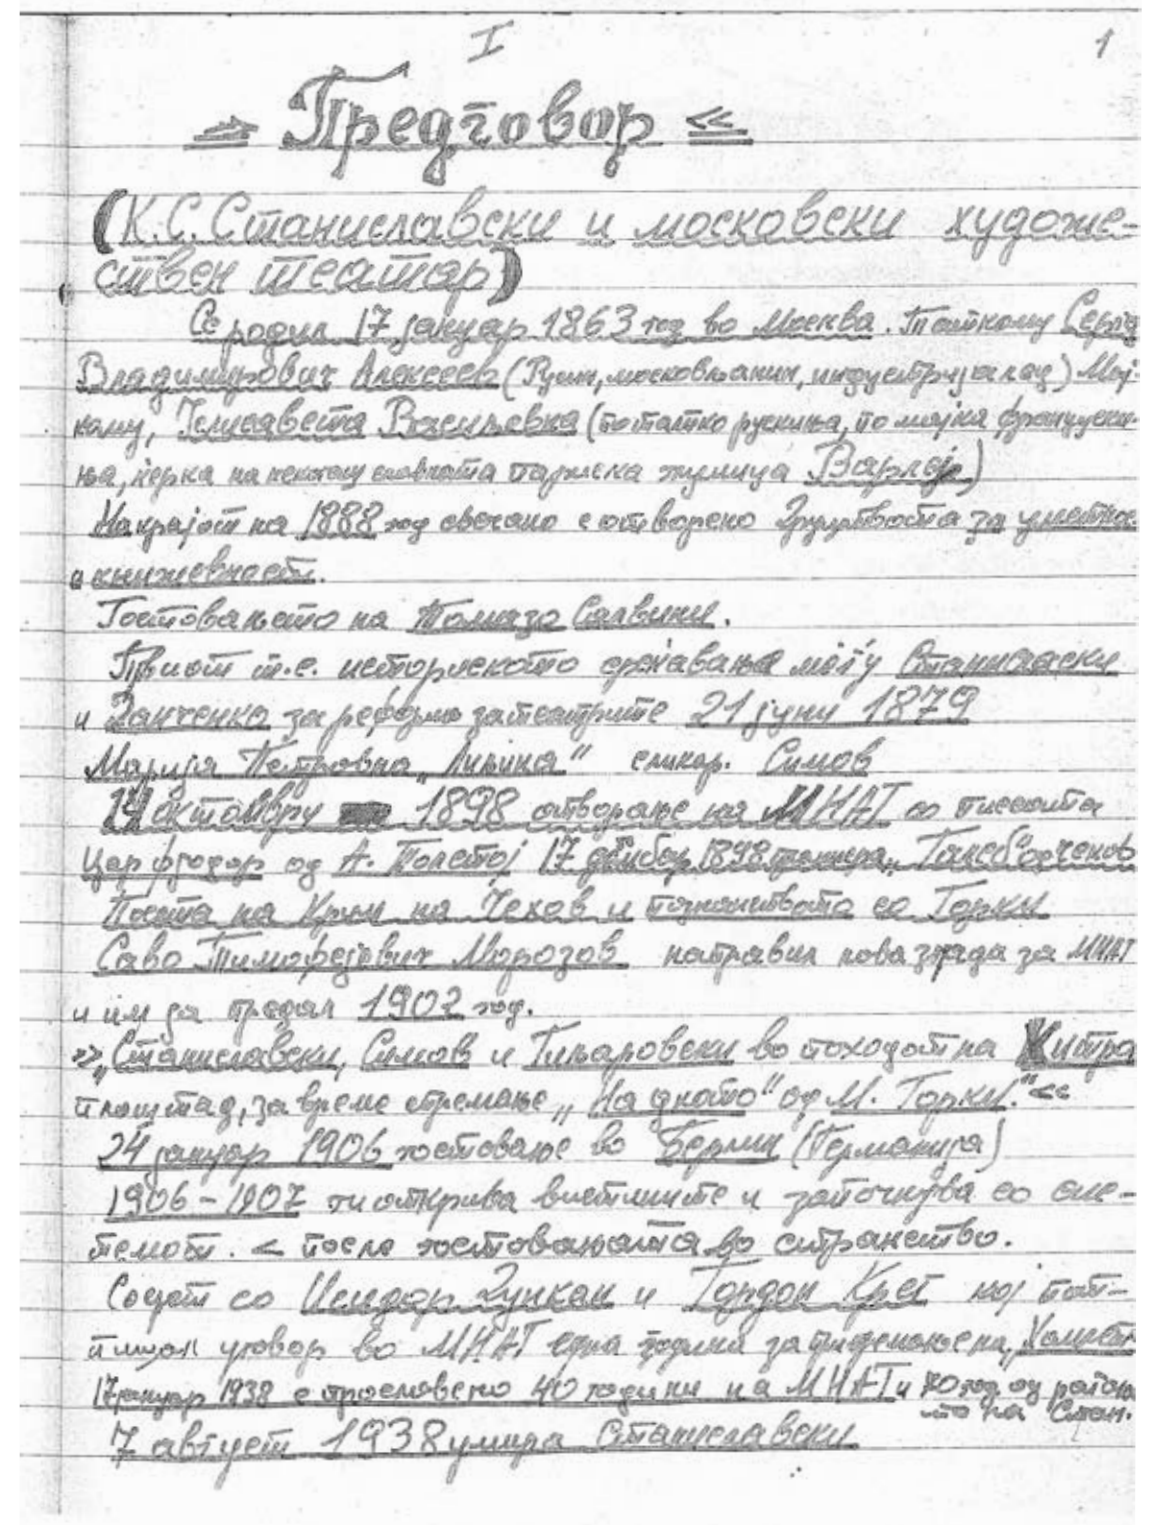 I
1
=> Предговор <=
(К.С. Станиславски и московски художе-
ствен театар)
Се родил 17 јануар 1863 год во Москва. Таткому Сергеј
Владимирович Алексеев (Русин, московљанин, индустријалец) Мај-
каму, Јелисавета Васиљевна (по татко рускиња, по мајка францускиња,
ња, ќерка на некогаш славната париска глумица Варлеј)
На крајот на 1888 год свечано е отворено Друштвото за уметнос.
и книжевност.
Гостовањето на Томазо Салвини.
Првиот т.е. историското среќавање меѓу Станиславски
и Данченко за реформа за театрите 21 јуни 1879
Марија Петровна „Лилина“ сликар. Симов
14 октомври 1898 отворање на МХАТ со писеата
Цар Фјодор од А. Толстој 17 декембер 1898 премиера „Галеб“ од Чехов
Посета на Крим на Чехов и познанството со Горки
Саво Тимофејевич Морозов направил нова зграда за МХАТ
и им ја предал 1902 год.
>> „Станиславски, Симов и Гиљаровски во походот на Хитра
плоштад, за време спремање „На дното“ од М. Горки.“ <<
24 јануар 1906 гостовање во Берлин (Германија)
1906 – 1907 ги открива вистините и започнува со сис-
темот. < после гостовањата во странство.
Сојот со Исидор Дункан и Гордон Крег кој пот-
пишал уговор во МХАТ една година за видемање на „Хамлет
17 јануар 1938 е прославено 40 години на МХАТ и 70 год од раѓање
то на Стан.
7 август 1938 умира Станиславски